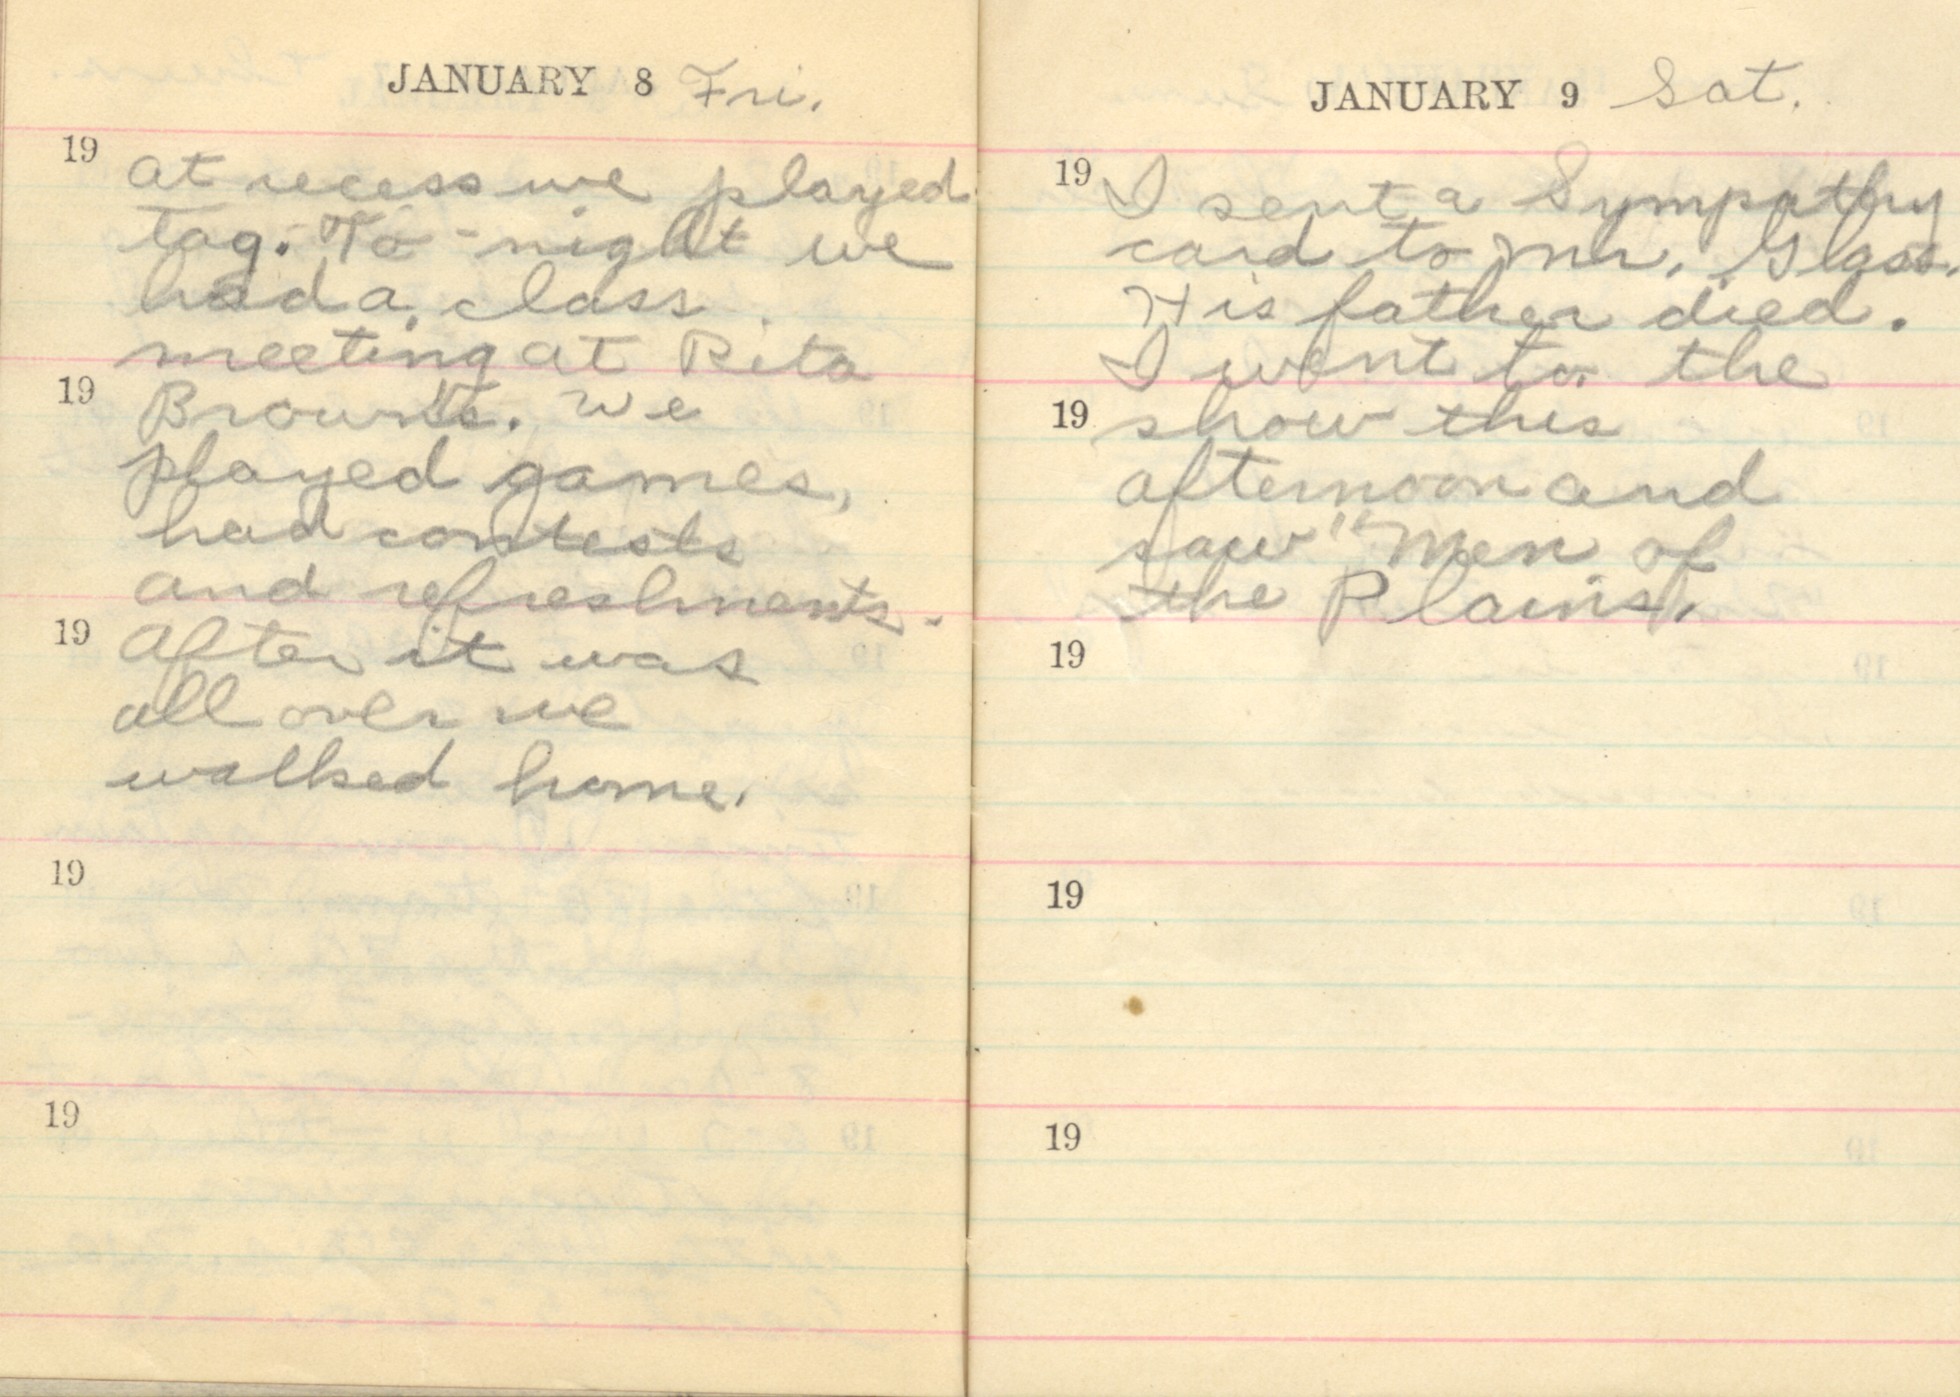 JANUARY 8 Fri.
19
At recess we played
tag. To-night we
had a class
meeting at Rita
19
Brown's. We
played games,
had contests
and refreshments.
19
After it was
all over we
walked home.
19
19
JANUARY 9 Sat.
19
I sent a Sympathy
card to Mr. Glass.
His father died.
I went to the
19
show this
afternoon and
saw "Men of
the Plains.
19
19
19